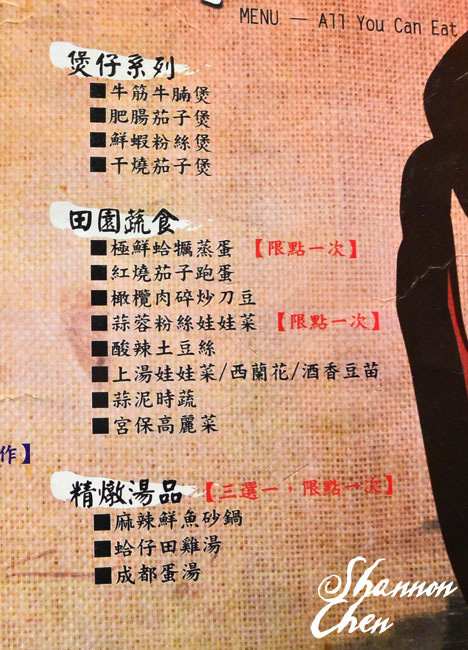 MENU — All You Can Eat
煲仔系列
■牛筋牛腩煲
■肥腸茄子煲
■鮮蝦粉絲煲
■干燒茄子煲
田園蔬食
■極鮮蛤蠣蒸蛋【限點一次】
■紅燒茄子跑蛋
■橄欖肉碎炒刀豆
■蒜蓉粉絲娃娃菜【限點一次】
■酸辣土豆絲
■上湯娃娃菜/西蘭花/酒香豆苗
■蒜泥時蔬
■宮保高麗菜
作】
精燉湯品【三選一,限點一次】
■麻辣鮮魚砂鍋
■蛤仔田雞湯
■成都蛋湯
Shannon
Chen